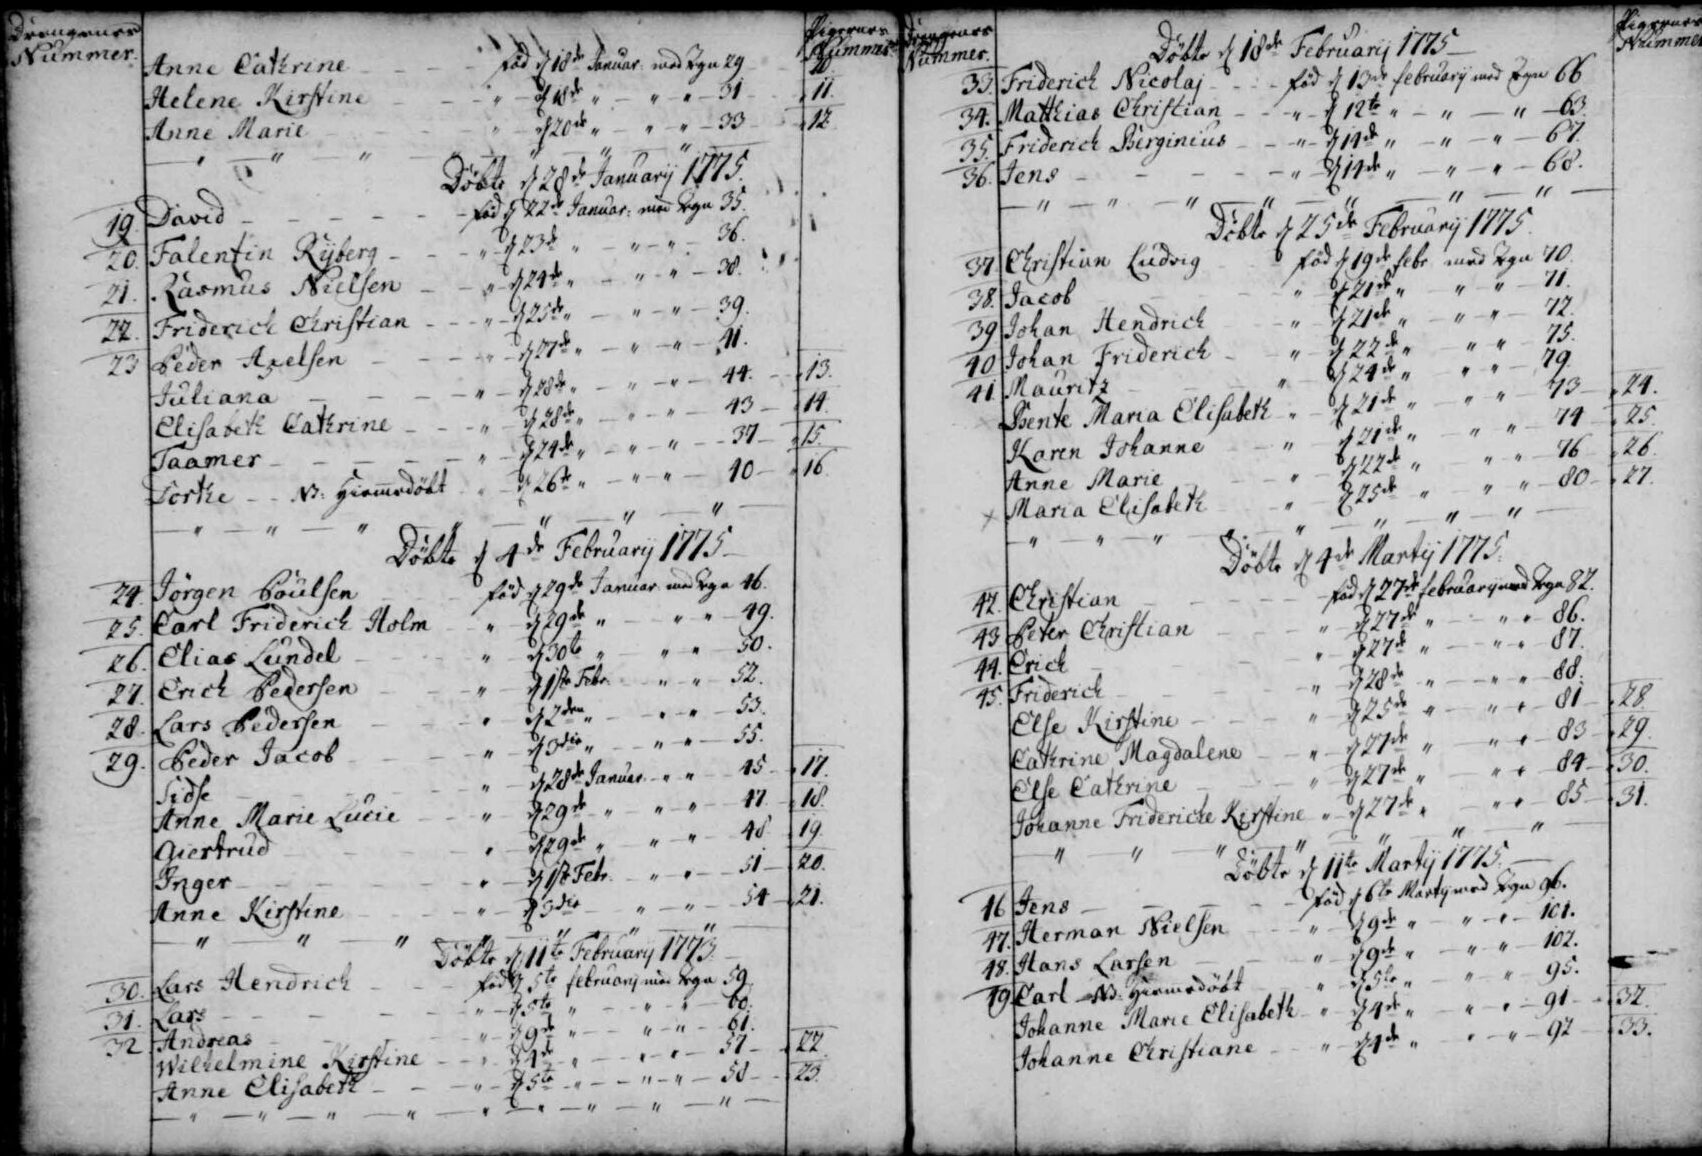 Drengenes Nummer. Pigernes Nummer
Anne Cathrine - - - fød d 18de Januar. med Tgn 29
Helene Kirstine - - " - d 18de " - " - " - 31 - 11.
Anne Marie - - " - d 20de " - " - " - 33 - 12.
Döbte d 28de Januarij 1775.
19. David - - - - fød d 22de Januar: med Tgn 35.
20. Falentin Rÿberg - - " d 23de " - " - " - 36.
21. Rasmus Nielsen - - " - d 24de " - " - " - 38.
22. Friderich Christian - - " - d 25de " - " - " - 39.
23 Peder Axelsen - - " - d 27de " - " - " - 41.
Juliana - - - " - d 28de " - " - " - 44. - 13.
Elisabeth Cathrine - - " - d 28de " - " - " - 43 - 14.
Taamer - - - " - d 24de " - " - " - 37 - 15.
Dorthe - - NB: Hiemmedöbt " - d 26te " - " - " - 40 - 16.
Döbte d 4de Februarij 1775
24. Jörgen Poulsen - - fød d 29de Januar med Tgn 46.
25. Carl Friderich Holm " d 29de " - " " - 49.
26. Elias Lundel - - " d 30te " - " " - 50.
27. Erich Pedersen - - " d 1ste Febr. - " " - 52.
28. Lars Pedersen - - " d 2den " - " " - 53.
29. Peder Jacob - - " d 3die " - " " - 55.
Sidse - - " d 28de Januar. - " " - 45 - 17.
Anne Marie Lucie - - " d 29de " - " " - 47 - 18.
Giertrud - - " d 29de " - " " - 48 - 19.
Inger - - - " d 1ste Febr. - " " - 51 - 20.
Anne Kirstine - - " d 3die - " - " - 54 - 21.
Döbte d 11te Februarij 1775.
30. Lars Hendrich - - fød d 5te februarij med Tgn 59.
31. Lars - - - " d 5te " - " " - 60.
32 Andreas - - " d 9de " - " " - 61.
Wilhelmine Kirstine - - " d 4de " - " " - 57 - 22.
Anne Elisabeth - - " d 5te " - " " - 58 - 23.
Drengenes Nummer. Pigernes Nummer
Döbte d 18de Februarij 1775
33. Friderich Nicolaj - - fød d 13de februarij med Tgn 66
34. Matthias Christian - - " - d 12te " - " - " - 63.
35. Friderich Berginius - - " - d 14de " - " - " - 67.
36. Jens - - - " - d 14de " - " - " - 68.
Döbte d 25de Februarij 1775.
37. Christian Ludvig fød d 19de febr. med Tgn 70.
38. Jacob - - " d 21de " - " " - 71.
39 Johan Hendrich " d 21de " - " " - 72.
40 Johan Friderich - " d 22de " - " " - 75.
41 Mauritz - - " d 24de " - " " - 79.
Bente Maria Elisabeth " d 21de " - " " - 73 - 24.
Karen Johanne - - " d 21de " - " " - 74 - 25.
Anne Marie - - " d 22de " - " " - 76 - 26.
Maria Elisabeth - - " d 25de " - " " - 80 - 27.
Döbte d 4de Martij 1775.
42. Christian - - - fød d 27de februarij med Tgn 82.
43 Peter Christian - - " d 27de " - " " - 86.
44. Erich - - " d 27de " - " " - 87.
45. Friderich - - " d 28de " - " " - 88.
Else Kirstine - - " d 25de " - " " - 81 - 28.
Cathrine Magdalene - " d 27de " - " " - 83 - 29.
Else Cathrine - - " d 27de " - " " - 84 - 30.
Johanne Fridericke Kirstine " d 27de " - " " - 85 - 31.
Döbte d 11te Martij 1775.
46 Jens - - - fød d 6te Martij med Tgn 96.
47. Herman Nielsen - - " d 9de " - " " - 101.
48. Hans Larsen - - " d 9de " - " " - 102.
49 Carl - NB: Hiemmedöbt " d 5te " - " " - 95.
Johanne Marie Elisabeth - " d 4de " - " " - 91 - 32.
Johanne Christiane - - " d 4de " - " " - 92 - 33.